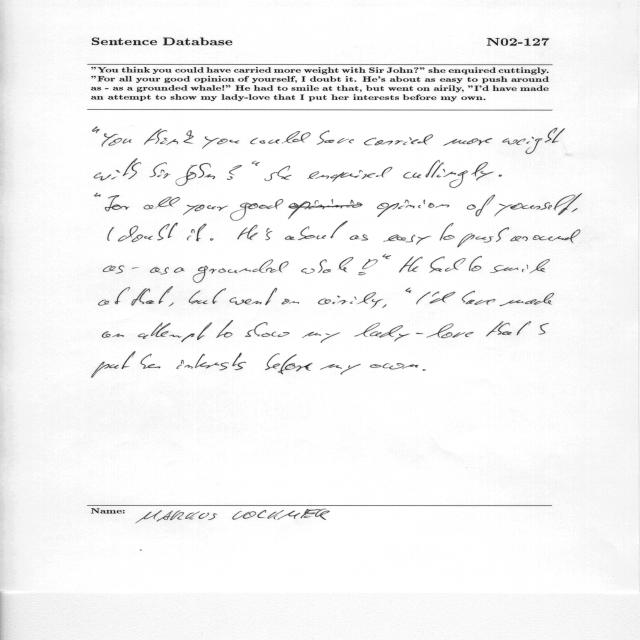 Sentence Database N02-127
"You think you could have carried more weight with Sir John?" she enquired cuttingly.
"For all your good opinion of yourself, I doubt it. He's about as easy to push around
as - as a grounded whale!" He had to smile at that, but went on airily, "I'd have made
an attempt to show my lady-love that I put her interests before my own.
"You think you could have carried more weight
with Sir John?" she enquired cuttingly.
"For all your good opinion of yourself,
I doubt it. He's about as easy to push around
as - as a grounded whale!" He had to smile
at that, but went on airily, "I'd have made
an attempt to show my lady-love that I
put her interests before my own.
Name: MARKUS